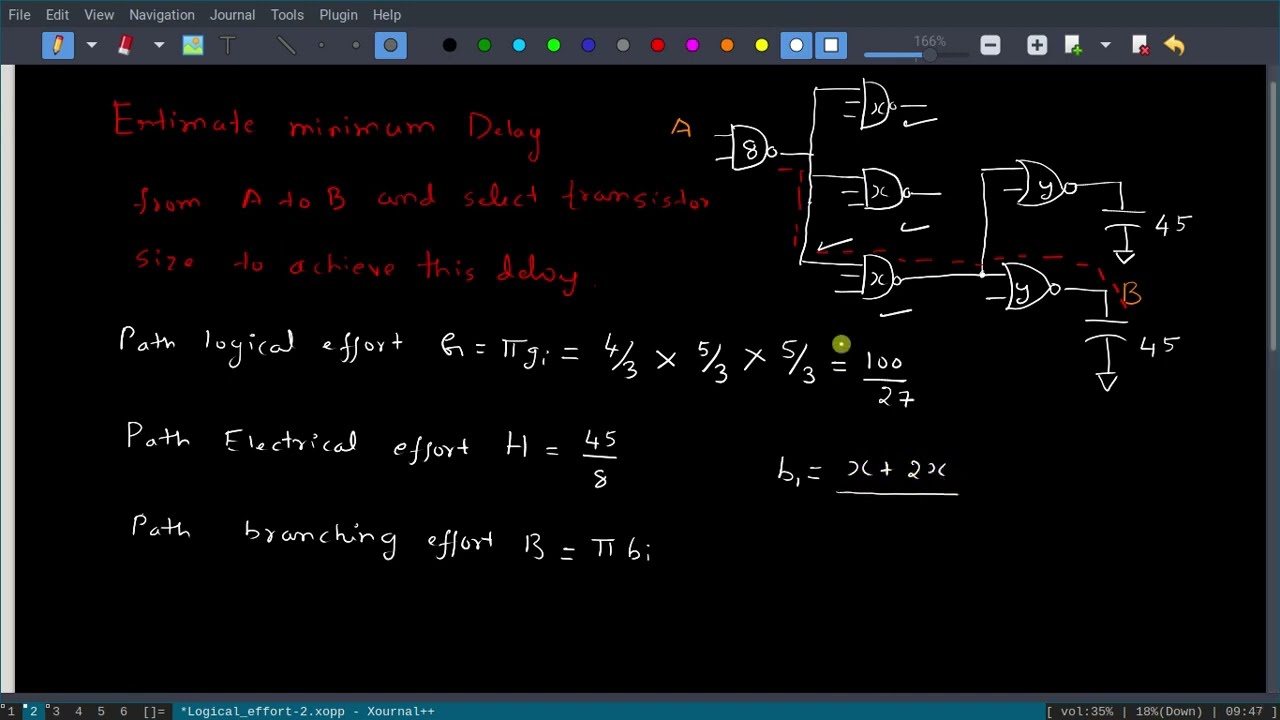 File Edit View Navigation Journal Tools Plugin Help
166%
Entimate minimum Delay
from A to B and select transistor
size to achieve this delay.
A
8
x
x
x
y
y
45
B
45
Path logical effort G = πgi = 4/3 × 5/3 × 5/3 = 100/27
Path Electrical effort H = 45/8
b1 = x + 2x
Path branching effort B = π bi
1 2 3 4 5 6 []= *Logical_effort-2.xopp - Xournal++ [ vol:35% | 18%(Down) | 09:47 ]